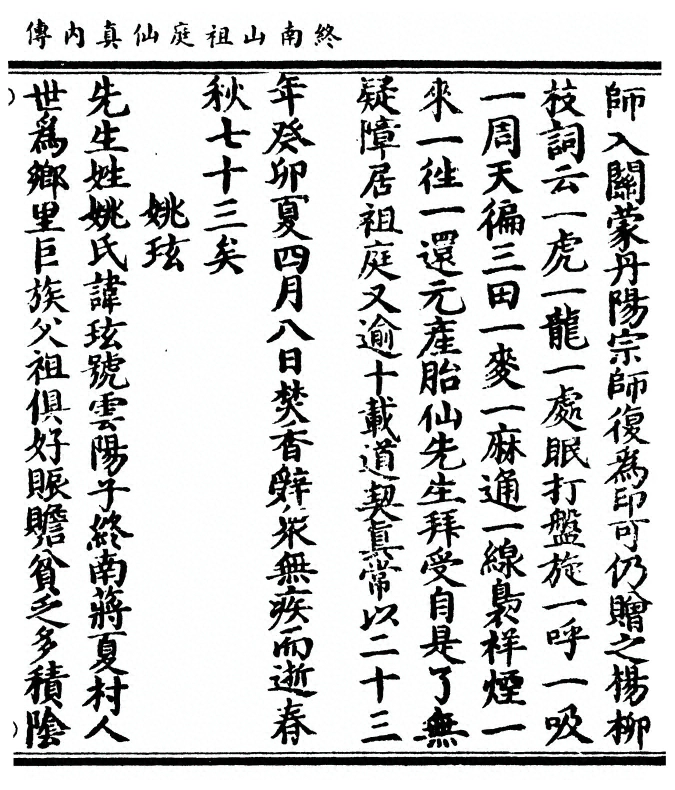 終南山祖庭仙真內傳
師入關蒙丹陽宗師復爲印可仍贈之楊柳
枝詞云一虎一龍一處眠打盤旋一呼一吸
一周天徧三田一麥一麻通一線裊祥煙一
來一徃一還元產胎仙先生拜受自是了無
疑障居祖庭又逾十載道契真常以二十三
年癸卯夏四月八日焚香辭衆無疾而逝春
秋七十三矣
姚玹
先生姓姚氏諱玹號雲陽子終南蔣夏村人
世爲鄉里巨族父祖俱好賑贍貧乏多積陰